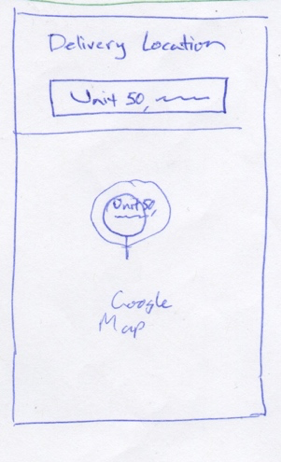 Delivery Location
Unit 50,
Unit 50,
Google
Map